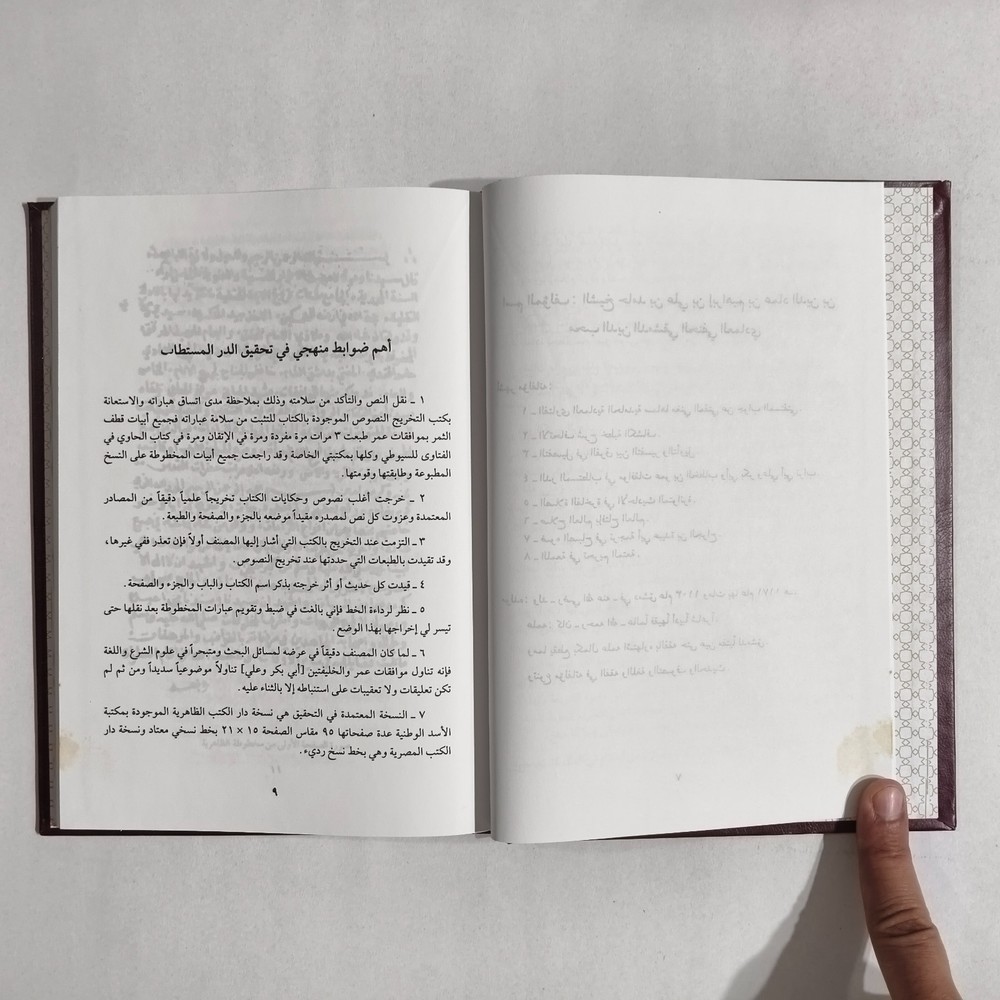 أهم ضوابط منهجي في تحقيق الدر المستطاب
١ ـ نقل النص والتأكد من سلامته وذلك بملاحظة مدى اتساق هباراته والاستعانة
بكتب التخريج النصوص الموجودة بالكتاب للتثبت من سلامة عباراته فجميع أبيات قطف
الثمر بموافقات عمر طبعت ٣ مرات مرة مفردة ومرة في الإتقان ومرة في كتاب الحاوي في
الفتاوى للسيوطي وكلها بمكتبتي الخاصة وقد راجعت جميع أبيات المخطوطة على النسخ
المطبوعة وطابقتها وقومتها.
٢ ـ خرجت أغلب نصوص وحكايات الكتاب تخريجاً علمياً دقيقاً من المصادر
المعتمدة وعزوت كل نص لمصدره مقيداً موضعه بالجزء والصفحة والطبعة.
٣ ـ التزمت عند التخريج بالكتب التي أشار إليها المصنف أولاً فإن تعذر ففي غيرها،
وقد تقيدت بالطبعات التي حددتها عند تخريج النصوص.
٤ ـ قيدت كل حديث أو أثر خرجته بذكر اسم الكتاب والباب والجزء والصفحة.
٥ ـ نظر لرداءة الخط فإني بالغت في ضبط وتقويم عبارات المخطوطة بعد نقلها حتى
تيسر لي إخراجها بهذا الوضع.
٦ ـ لما كان المصنف دقيقاً في عرضه لمسائل البحث ومتبحراً في علوم الشرع واللغة
فإنه تناول موافقات عمر والخليفتين [أبي بكر وعلي] تناولاً موضوعياً سديداً ومن ثم لم
تكن تعليقات ولا تعقيبات على استنباطه إلا بالثناء عليه.
٧ ـ النسخة المعتمدة في التحقيق هي نسخة دار الكتب الظاهرية الموجودة بمكتبة
الأسد الوطنية عدة صفحاتها ٩٥ مقاس الصفحة ١٥ × ٢١ بخط نسخي معتاد ونسخة دار
الكتب المصرية وهي بخط نسخ رديء.
٩